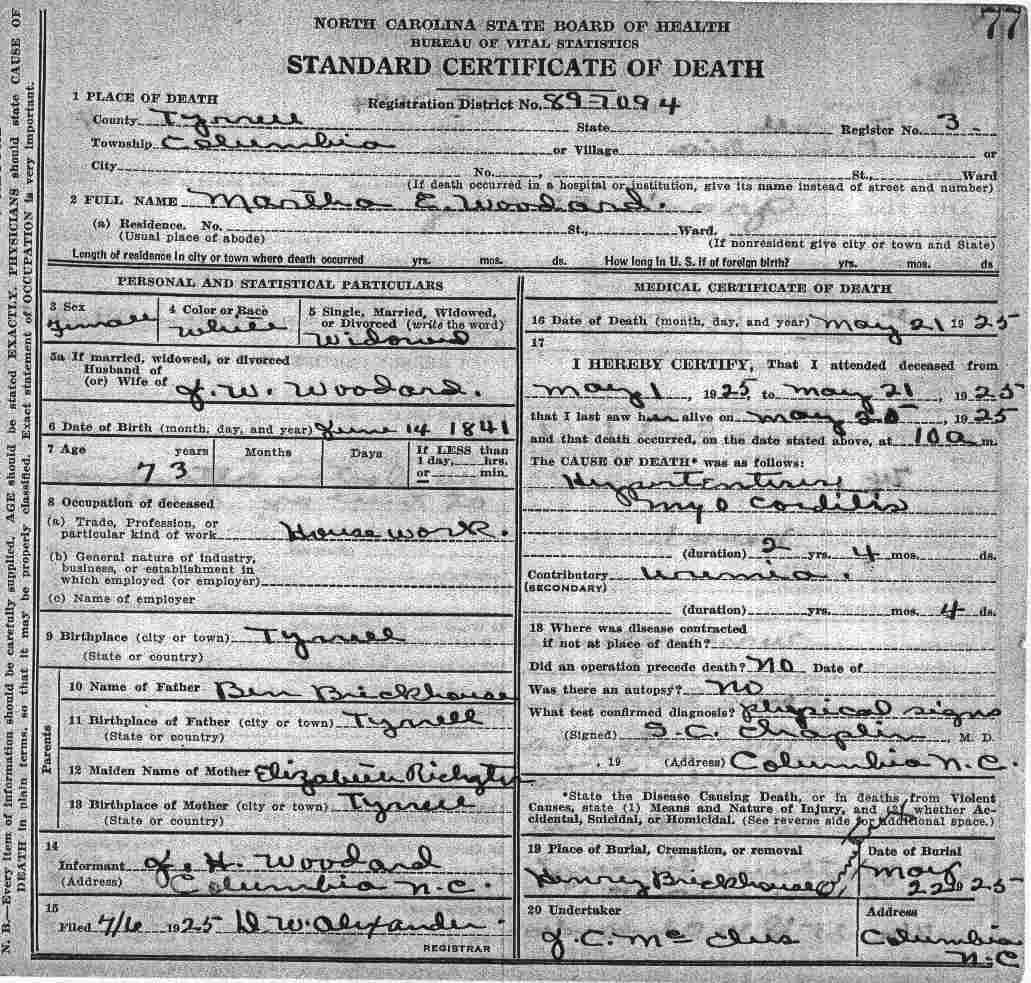 77
NORTH CAROLINA STATE BOARD OF HEALTH
BUREAU OF VITAL STATISTICS
STANDARD CERTIFICATE OF DEATH
1 PLACE OF DEATH
Registration District No. 89-7094
County Tyrrell State Register No. 3-
Township Columbia or Village or
City No. , St., Ward
(If death occurred in a hospital or institution, give its name instead of street and number)
2 FULL NAME Martha E. Woodard.
(a) Residence. No. St., Ward.
(Usual place of abode) (If nonresident give city or town and State)
Length of residence in city or town where death occurred yrs. mos. ds. How long in U. S. if of foreign birth? yrs. mos. ds
PERSONAL AND STATISTICAL PARTICULARS
3 Sex
Female
4 Color or Race
White
5 Single, Married, Widowed,
or Divorced (write the word)
Widowed
5a If married, widowed, or divorced
Husband of
(or) Wife of J. W. Woodard.
6 Date of Birth (month, day, and year) June 14 1841
7 Age years Months Days If LESS than
1 day, hrs.
or min.
73
8 Occupation of deceased
(a) Trade, Profession, or
particular kind of work House work.
(b) General nature of industry,
business, or establishment in
which employed (or employer)
(c) Name of employer
9 Birthplace (city or town) Tyrrell
(State or country)
Parents
10 Name of Father Ben Brickhouse
11 Birthplace of Father (city or town) Tyrrell
(State or country)
12 Maiden Name of Mother Elizabeth
13 Birthplace of Mother (city or town) Tyrrell
(State or country)
14
Informant H. Woodard
(Address) Columbia N.C.
15
Filed 7/6 1925 D. W. Alexander
REGISTRAR
MEDICAL CERTIFICATE OF DEATH
16 Date of Death (month, day, and year) May 21 1925
17
I HEREBY CERTIFY, That I attended deceased from
May 1, 1925 to May 21, 1925
that I last saw her alive on May 20, 1925
and that death occurred, on the date stated above, at 10 a m.
The CAUSE OF DEATH* was as follows:
Hypertensive
Myocarditis
(duration) 2 yrs. 4 mos. ds.
Contributory uremia.
(SECONDARY)
(duration) yrs. mos. 4 ds.
18 Where was disease contracted
if not at place of death?
Did an operation precede death? No Date of
Was there an autopsy? No
What test confirmed diagnosis? physical signs
(Signed) S. C. Chaplin, M. D.
, 19 (Address) Columbia N.C.
*State the Disease Causing Death, or in deaths from Violent
Causes, state (1) Means and Nature of Injury, and (2) whether Ac-
cidental, Suicidal, or Homicidal. (See reverse side for additional space.)
19 Place of Burial, Cremation, or removal
Henry Brickhouse
Date of Burial
May
22 1925
20 Undertaker
J. C.
Address
Columbia
N.C
N. B.—Every item of Information should be carefully supplied. AGE should be stated EXACTLY. PHYSICIANS should state CAUSE OF
DEATH in plain terms, so that it may be properly classified. Exact statement of OCCUPATION is very important.